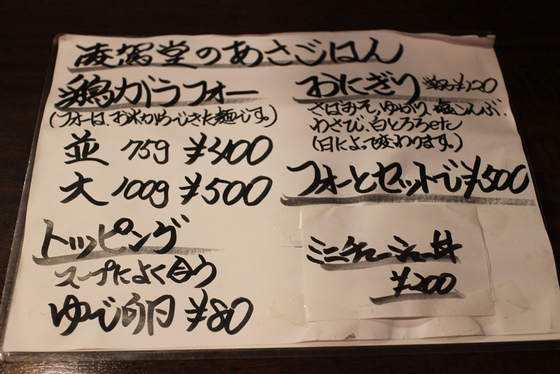 凌駕堂のあさごはん
鶏ガラフォー
(フォーは、お米からできた麺です。)
並 75g ¥400
大 100g ¥500
トッピング
スープによく合う
ゆで卵 ¥80
おにぎり ¥120
さばみそ、ゆかり、塩こんぶ、
わさび、白とろろetc
(日によって変わります。)
フォーとセットで¥500
ミニチャーシュー丼
¥200